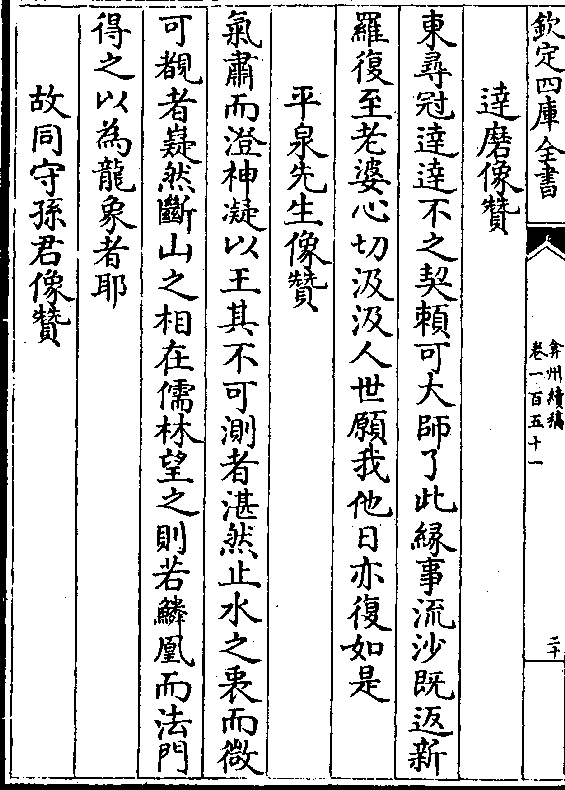 欽定四庫全書
弇州續稿
卷一百五十一
二十
達磨像贊
東尋冦達達不之契頼可大師了此縁事流沙既返新
羅復至老婆心切汲汲人世願我他日亦復如是
平泉先生像贊
氣肅而澄神凝以王其不可測者湛然止水之衷而微
可覩者嶷然斷山之相在儒林望之則若鱗凰而法門
得之以為龍象者耶
故同守孫君像贊